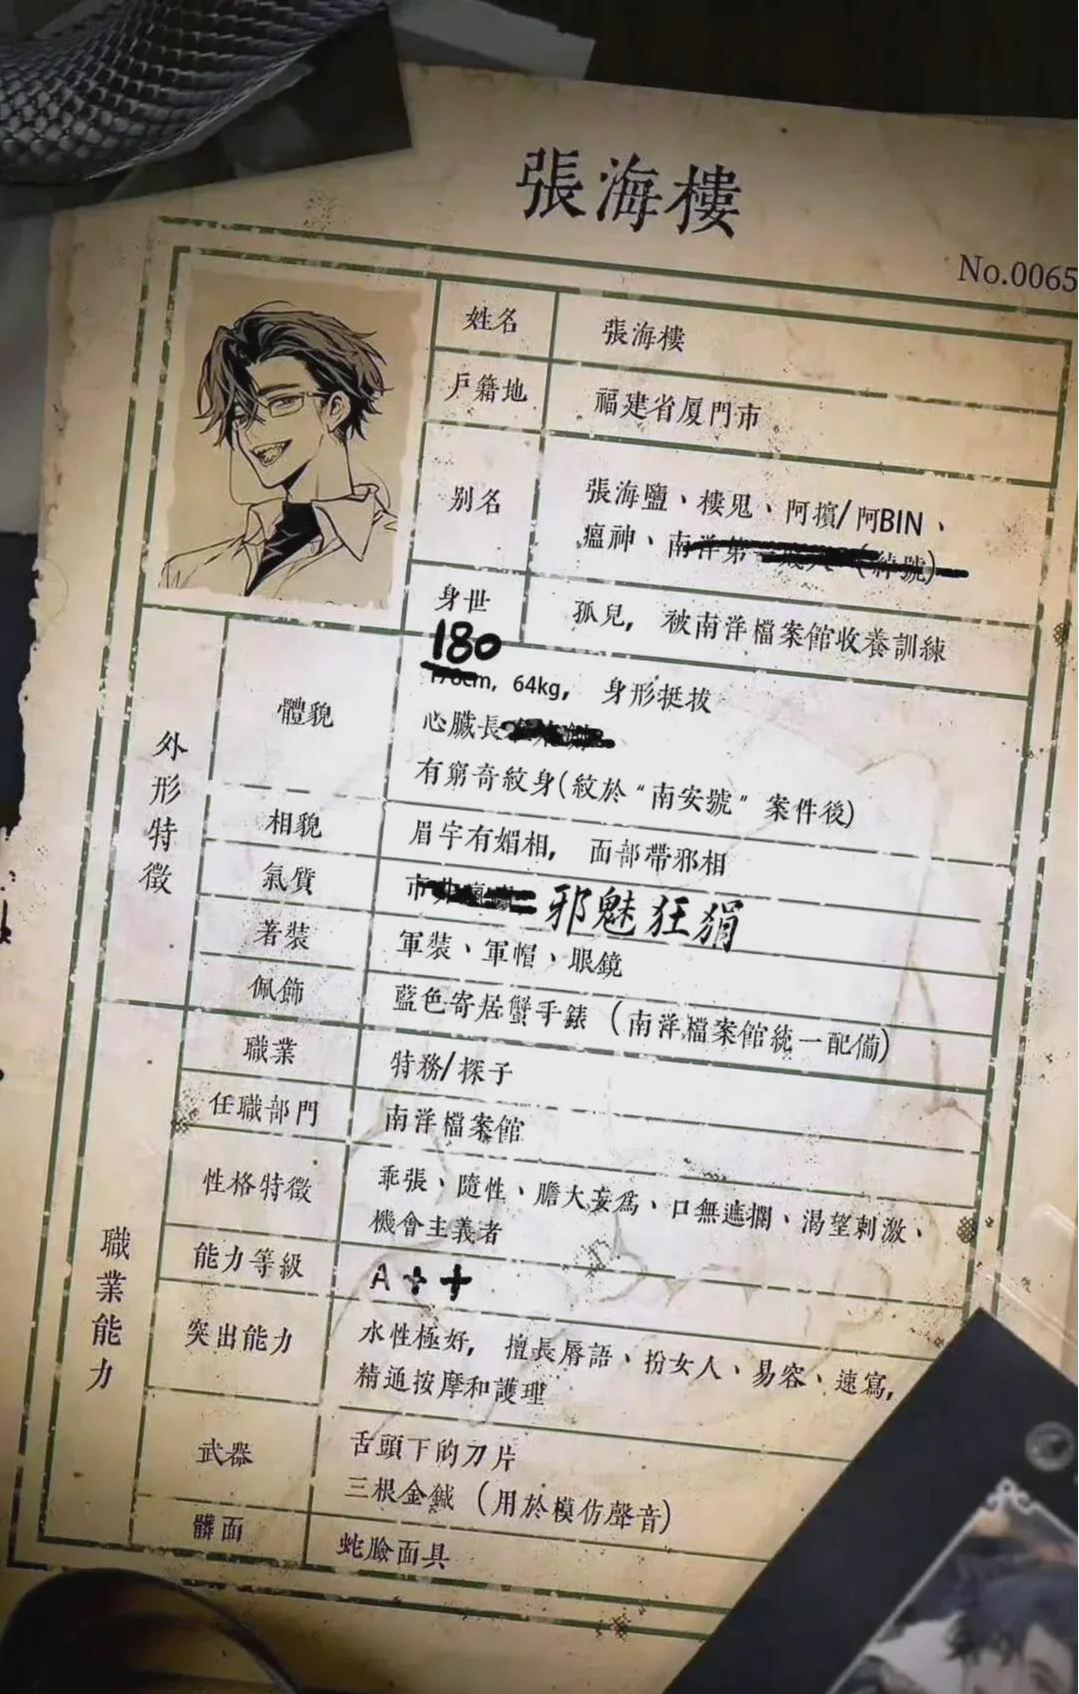 張海樓
No.0065
姓名
張海樓
戶籍地
福建省厦門市
别名
張海鹽、樓鬼、阿擯/阿BIN、
瘟神、南洋第
身世
孤兒, 被南洋檔案館收養訓練
外形特徵
體貌
180
cm, 64kg, 身形挺拔
心臟長
有窮奇紋身(紋於“南安號”案件後)
相貌
眉宇有媚相, 面部帶邪相
氣質
市
邪魅狂狷
著裝
軍裝、軍帽、眼鏡
佩飾
藍色寄居蟹手錶 (南洋檔案館統一配備)
職業能力
職業
特務/探子
任職部門
南洋檔案館
性格特徵
乖張、隨性、膽大妄爲、口無遮攔、渴望刺激、
機會主義者
能力等級
A++
突出能力
水性極好, 擅長脣語、扮女人、易容、速寫,
精通按摩和護理
武器
舌頭下的刀片
三根金鍼 (用於模仿聲音)
髒面
蛇臉面具